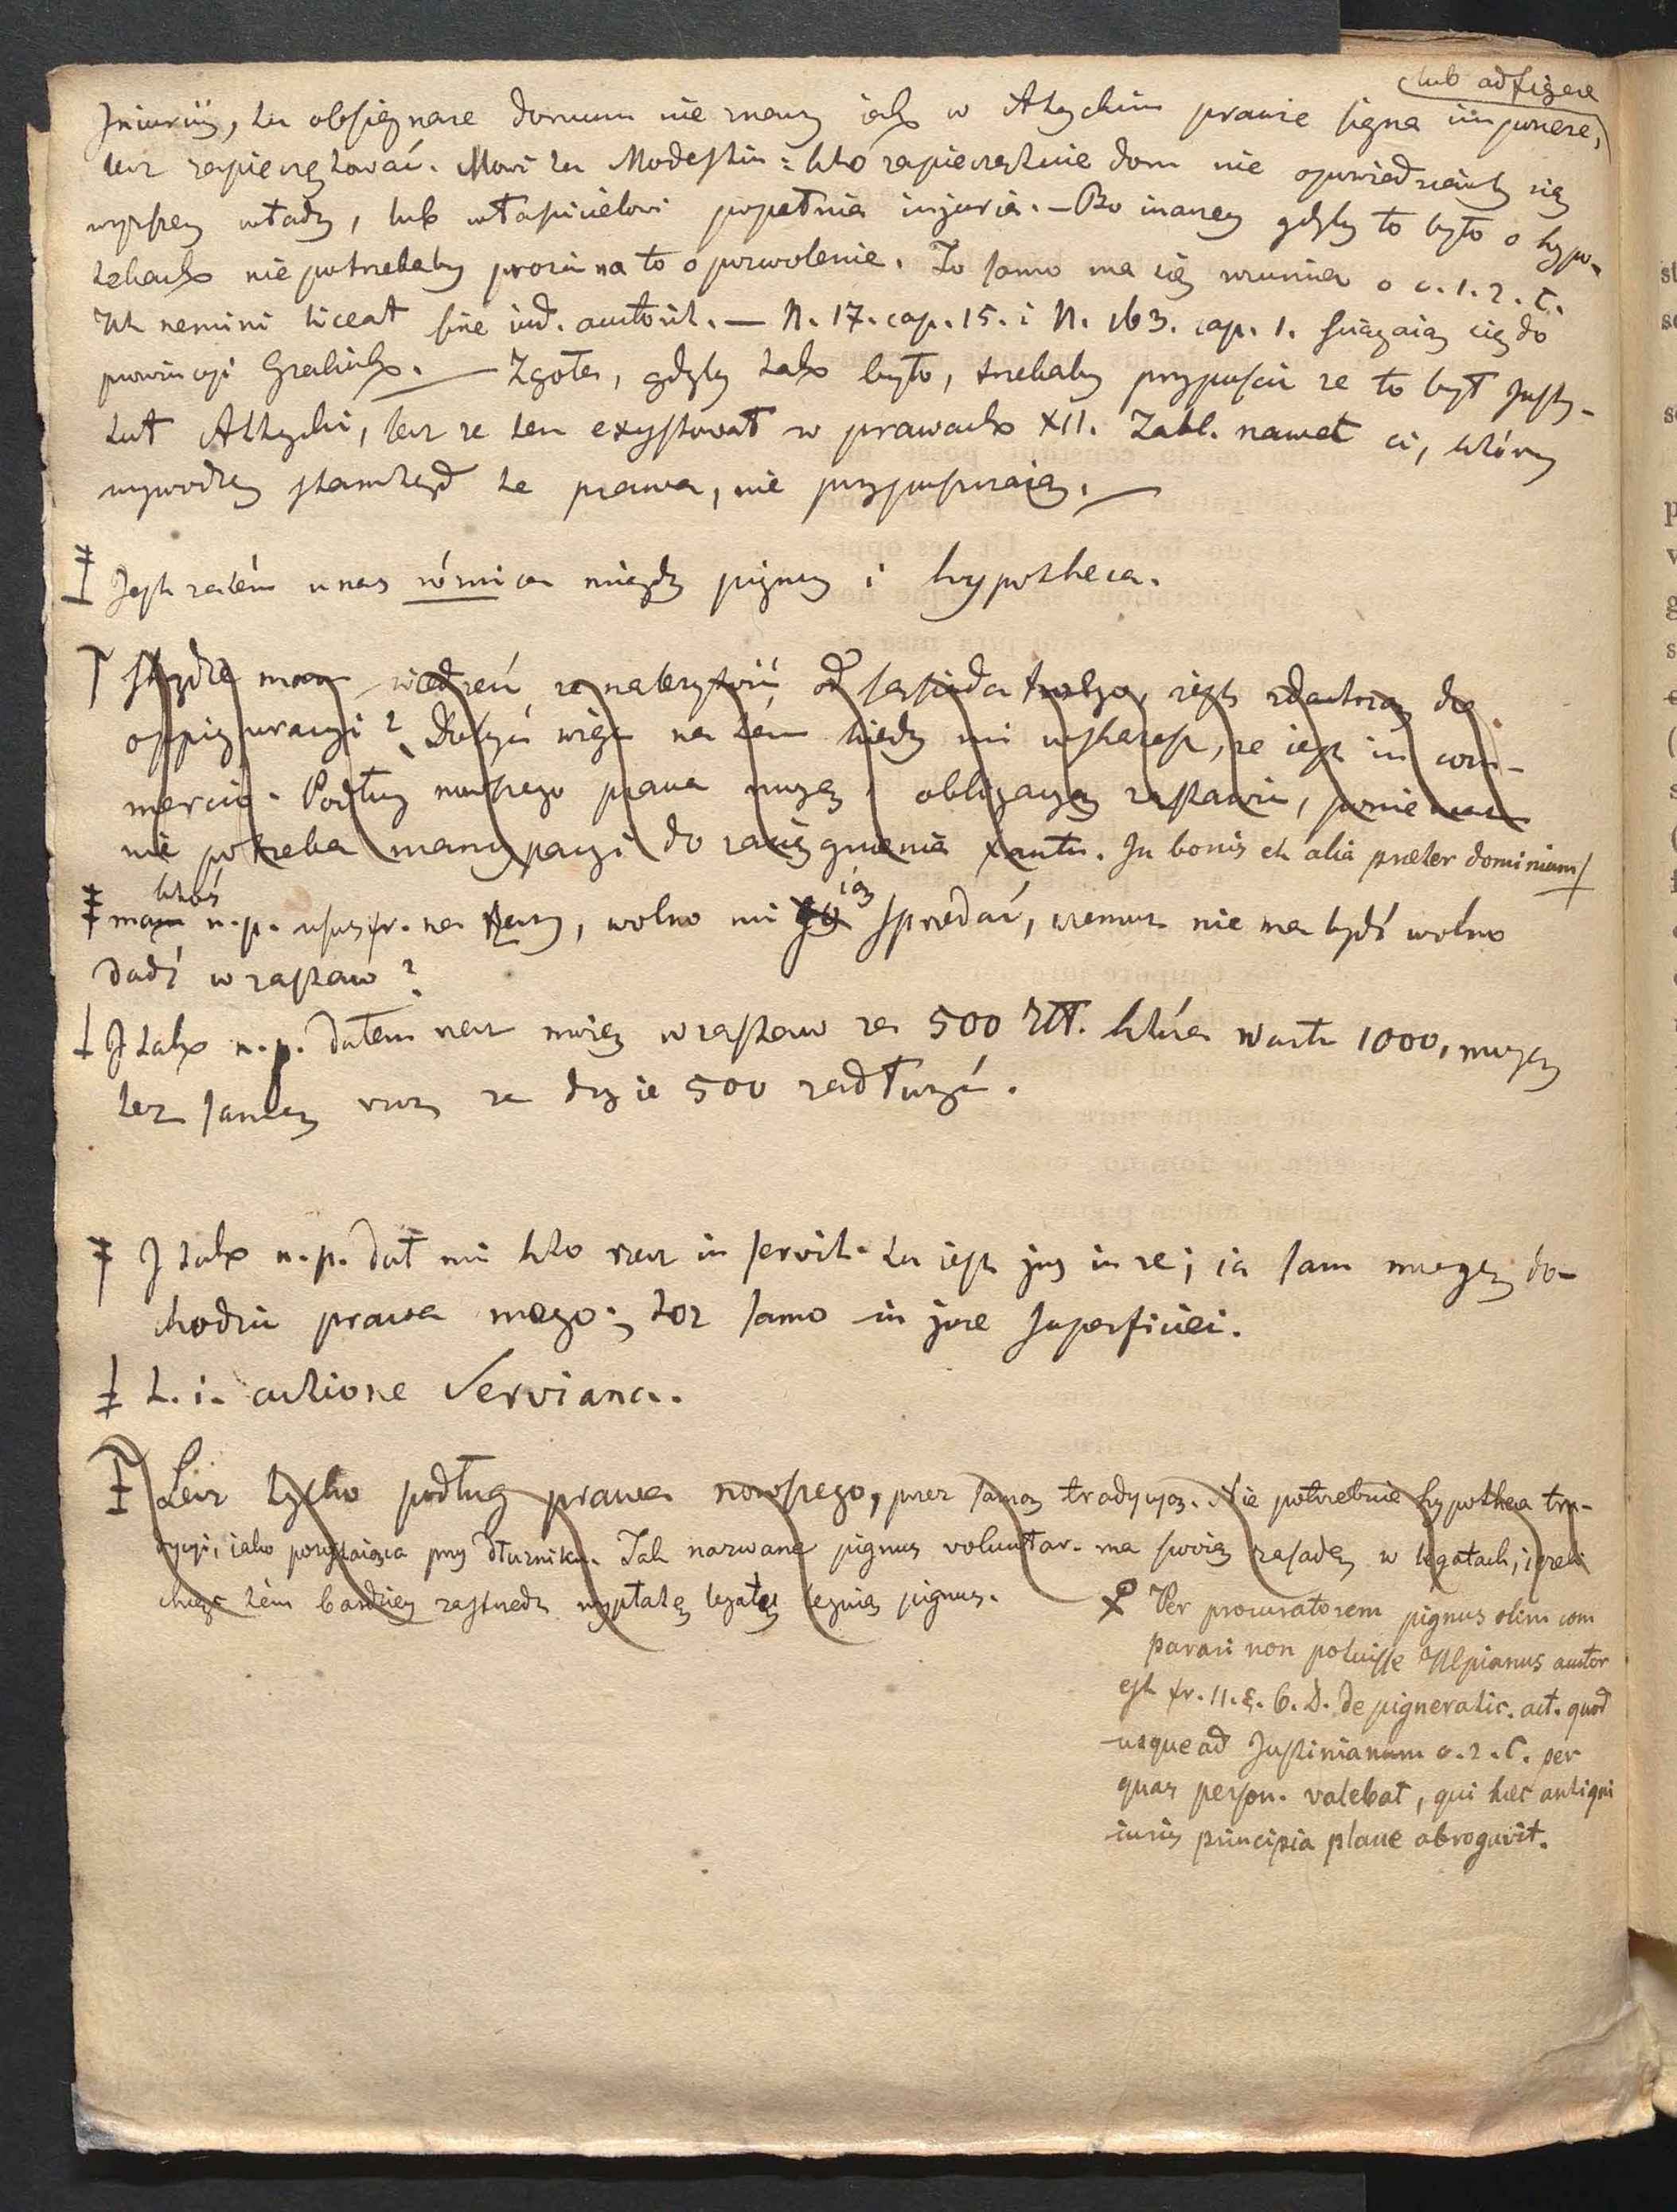 lub adfigere
Iniuriij, tu obsignare domum nie znaczy iak w Attyckim prawie signa imponere,
lecz zapieczętować. Mowi tu Modestin: kto zapieczętuie dom nie opowiedziawszy się
wyższey władzy, lub właścicielowi popełnia injuria. – Bo inaczey gdyby to było o hypo-
tekach nie potrzebaby prosić na to o pozwolenie. To samo ma się rozumieć o c. 1. 2. C.
Ut nemini liceat sine iud. auctorit. — N. 17. cap. 15. i N. 163. cap. 1. ściągaią się do
prowincyi Greckich. — Zgoła, gdyby tak było, trzebaby przypuścić ze to był Insty-
tut Attycki, lecz ze ten exystował w prawach XII. Tabl. nawet ci, którzy
wywodzą stamtąd te prawa, nie przypuszczaią. —
Jest zatém u nas róznica między pignus i hypotheca.
Skądze mam wiedzieć ze należytość od sąsiada iest zdatną do
oppignoracyi? Dosyć więc na tem kiedy mi wskażesz, ze iest in com-
mercio. Podług nowszego prawa mogę i obligacyą zastawić, ponieważ
nie potrzeba mancypacyi do zaciągnienia. In bonis et alia præter dominium
ktoś
mam n. p. usus fr. na rzeczy, wolno mi ią sprzedać, czemuz nie ma bydź wolno
dadź w zastaw?
I tak n. p. dałem rzecz moię w zastaw za 500 Złł. która warta 1000, mogę
tez samą rzecz za drugie 500 zadłuzyć.
I tak n. p. dał mi kto rzecz in servit. tu iest jus in re; ia sam mogę do-
chodzić prawa mego; toz samo in jure superficiei.
t. i. actione Serviana.
Lecz tylko podług prawa nowszego, przez samą tradycyą. Nie potrzebuie hypotheca tra-
dycyi, iako pozostaiąca przy dłuzniku. Tak nazwane pignus voluntar. ma swoią zasadę w legatach, iezeli
chcąc tém bardziey zastrzedz wypłatę legatu legnią pignus.
Per procuratorem pignus olim com
parari non potuisse Ulpianus auctor
est fr. 11. §. 6. D. de pigneratic. act. quod
usque ad Justinianum c. 2. C. per
quas person. valebat, qui hæc antiqui
iuris principia plane abrogavit.